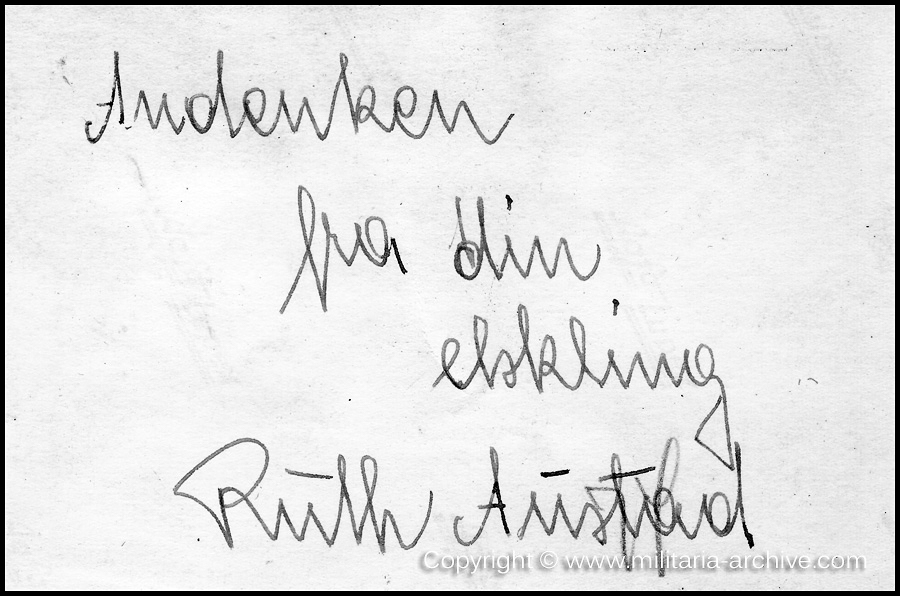 Andenken
fra din
elskling
Ruth Austad
Copyright © www.militaria-archive.com